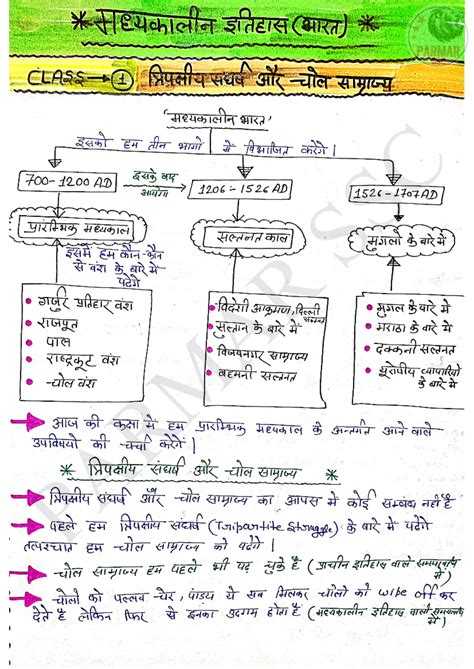 * मध्यकालीन इतिहास (भारत) *
PARMAR
CLASS → 1 त्रिपक्षीय संघर्ष और चोल साम्राज्य
'मध्यकालीन भारत'
इसको हम तीन भागो में विभाजित करेंगे।
700-1200 AD
इसके बाद आयेगा
1206-1526 AD
1526-1707 AD
प्रारम्भिक मध्यकाल
सल्तनत काल
मुगलो के बारे में
इसमें हम कौन-कौन
से वंश के बारे में
पढेगें
• गुर्जर प्रतिहार वंश
• राजपूत
• पाल
• राष्ट्रकूट वंश
• चोल वंश
• विदेशी आक्रमण, दिल्ली
• सुल्तान के बारे में
• विजयनगर साम्राज्य
• बहमनी सल्तनत
• मुगल के बारे में
• मराठा के बारे में
• दक्कनी सल्तनत
• यूरोपीय व्यापारियों
के बारे में
→ आज की कक्षा में हम प्रारम्भिक मध्यकाल के अन्तर्गत आने वाले
उपविषयो की चर्चा करेंगे।
* त्रिपक्षीय संघर्ष और चोल साम्राज्य *
→ त्रिपक्षीय संघर्ष और चोल साम्राज्य का आपस में कोई सम्बन्ध नहीं है
→ पहले हम त्रिपक्षीय संघर्ष (Tripartite Struggle) के बारे में पढेगें
तत्पश्चात हम चोल साम्राज्य को पढेगें।
→ चोल साम्राज्य हम पहले भी पढ़ चुके है (प्राचीन इतिहास वाले में)
→ चोलो को पल्लव चेर, पांडय ये सब मिलकर चोलो को wipe off कर
देते है लेकिन फिर से इनका उदगम होता है (मध्यकालीन इतिहास वाली में)
PARMAR SSC